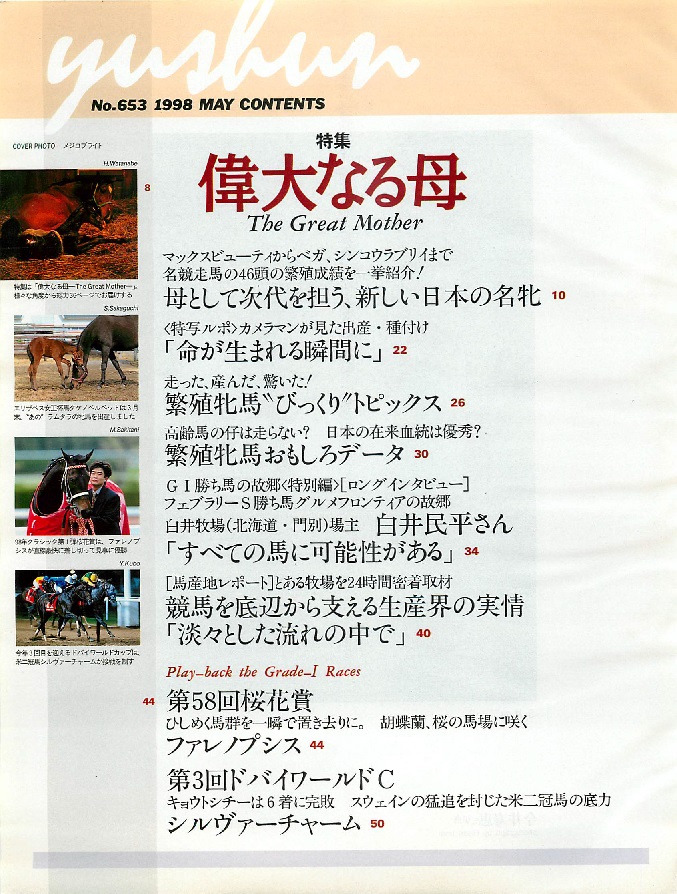 yushun
No.653 1998 MAY CONTENTS
COVER PHOTO メジロブライト
H.Watanabe
8
特集は「偉大なる母―The Great Mother―」。
様々な角度から総力36ページでお届けする
S.Sakaguchi
エリザベス女王杯馬タケノベルベットは3月
末、“あの”ラムタラの牝馬を出産しました
M.Sakitani
98年クラシック第1弾桜花賞は、ファレノプ
シスが直線豪快に差し切って見事に優勝
Y.Kubo
今年3回目を迎えるドバイワールドカップは、
米二冠馬シルヴァーチャームが接戦を制す
特集
偉大なる母
The Great Mother
マックスビューティからベガ、シンコウラブリイまで
名競走馬の46頭の繁殖成績を一挙紹介!
母として次代を担う、新しい日本の名牝 10
〈特写ルポ〉カメラマンが見た出産・種付け
「命が生まれる瞬間に」 22
走った、産んだ、驚いた!
繁殖牝馬“びっくり”トピックス 26
高齢馬の仔は走らない? 日本の在来血統は優秀?
繁殖牝馬おもしろデータ 30
GI勝ち馬の故郷〈特別編〉[ロングインタビュー]
フェブラリーS勝ち馬グルメフロンティアの故郷
白井牧場(北海道・門別)場主 白井民平さん
「すべての馬に可能性がある」 34
[馬産地レポート]とある牧場を24時間密着取材
競馬を底辺から支える生産界の実情
「淡々とした流れの中で」 40
Play-back the Grade-I Races
44 第58回桜花賞
ひしめく馬群を一瞬で置き去りに。 胡蝶蘭、桜の馬場に咲く
ファレノプシス 44
第3回ドバイワールドC
キョウトシチーは6着に完敗 スウェインの猛追を封じた米二冠馬の底力
シルヴァーチャーム 50